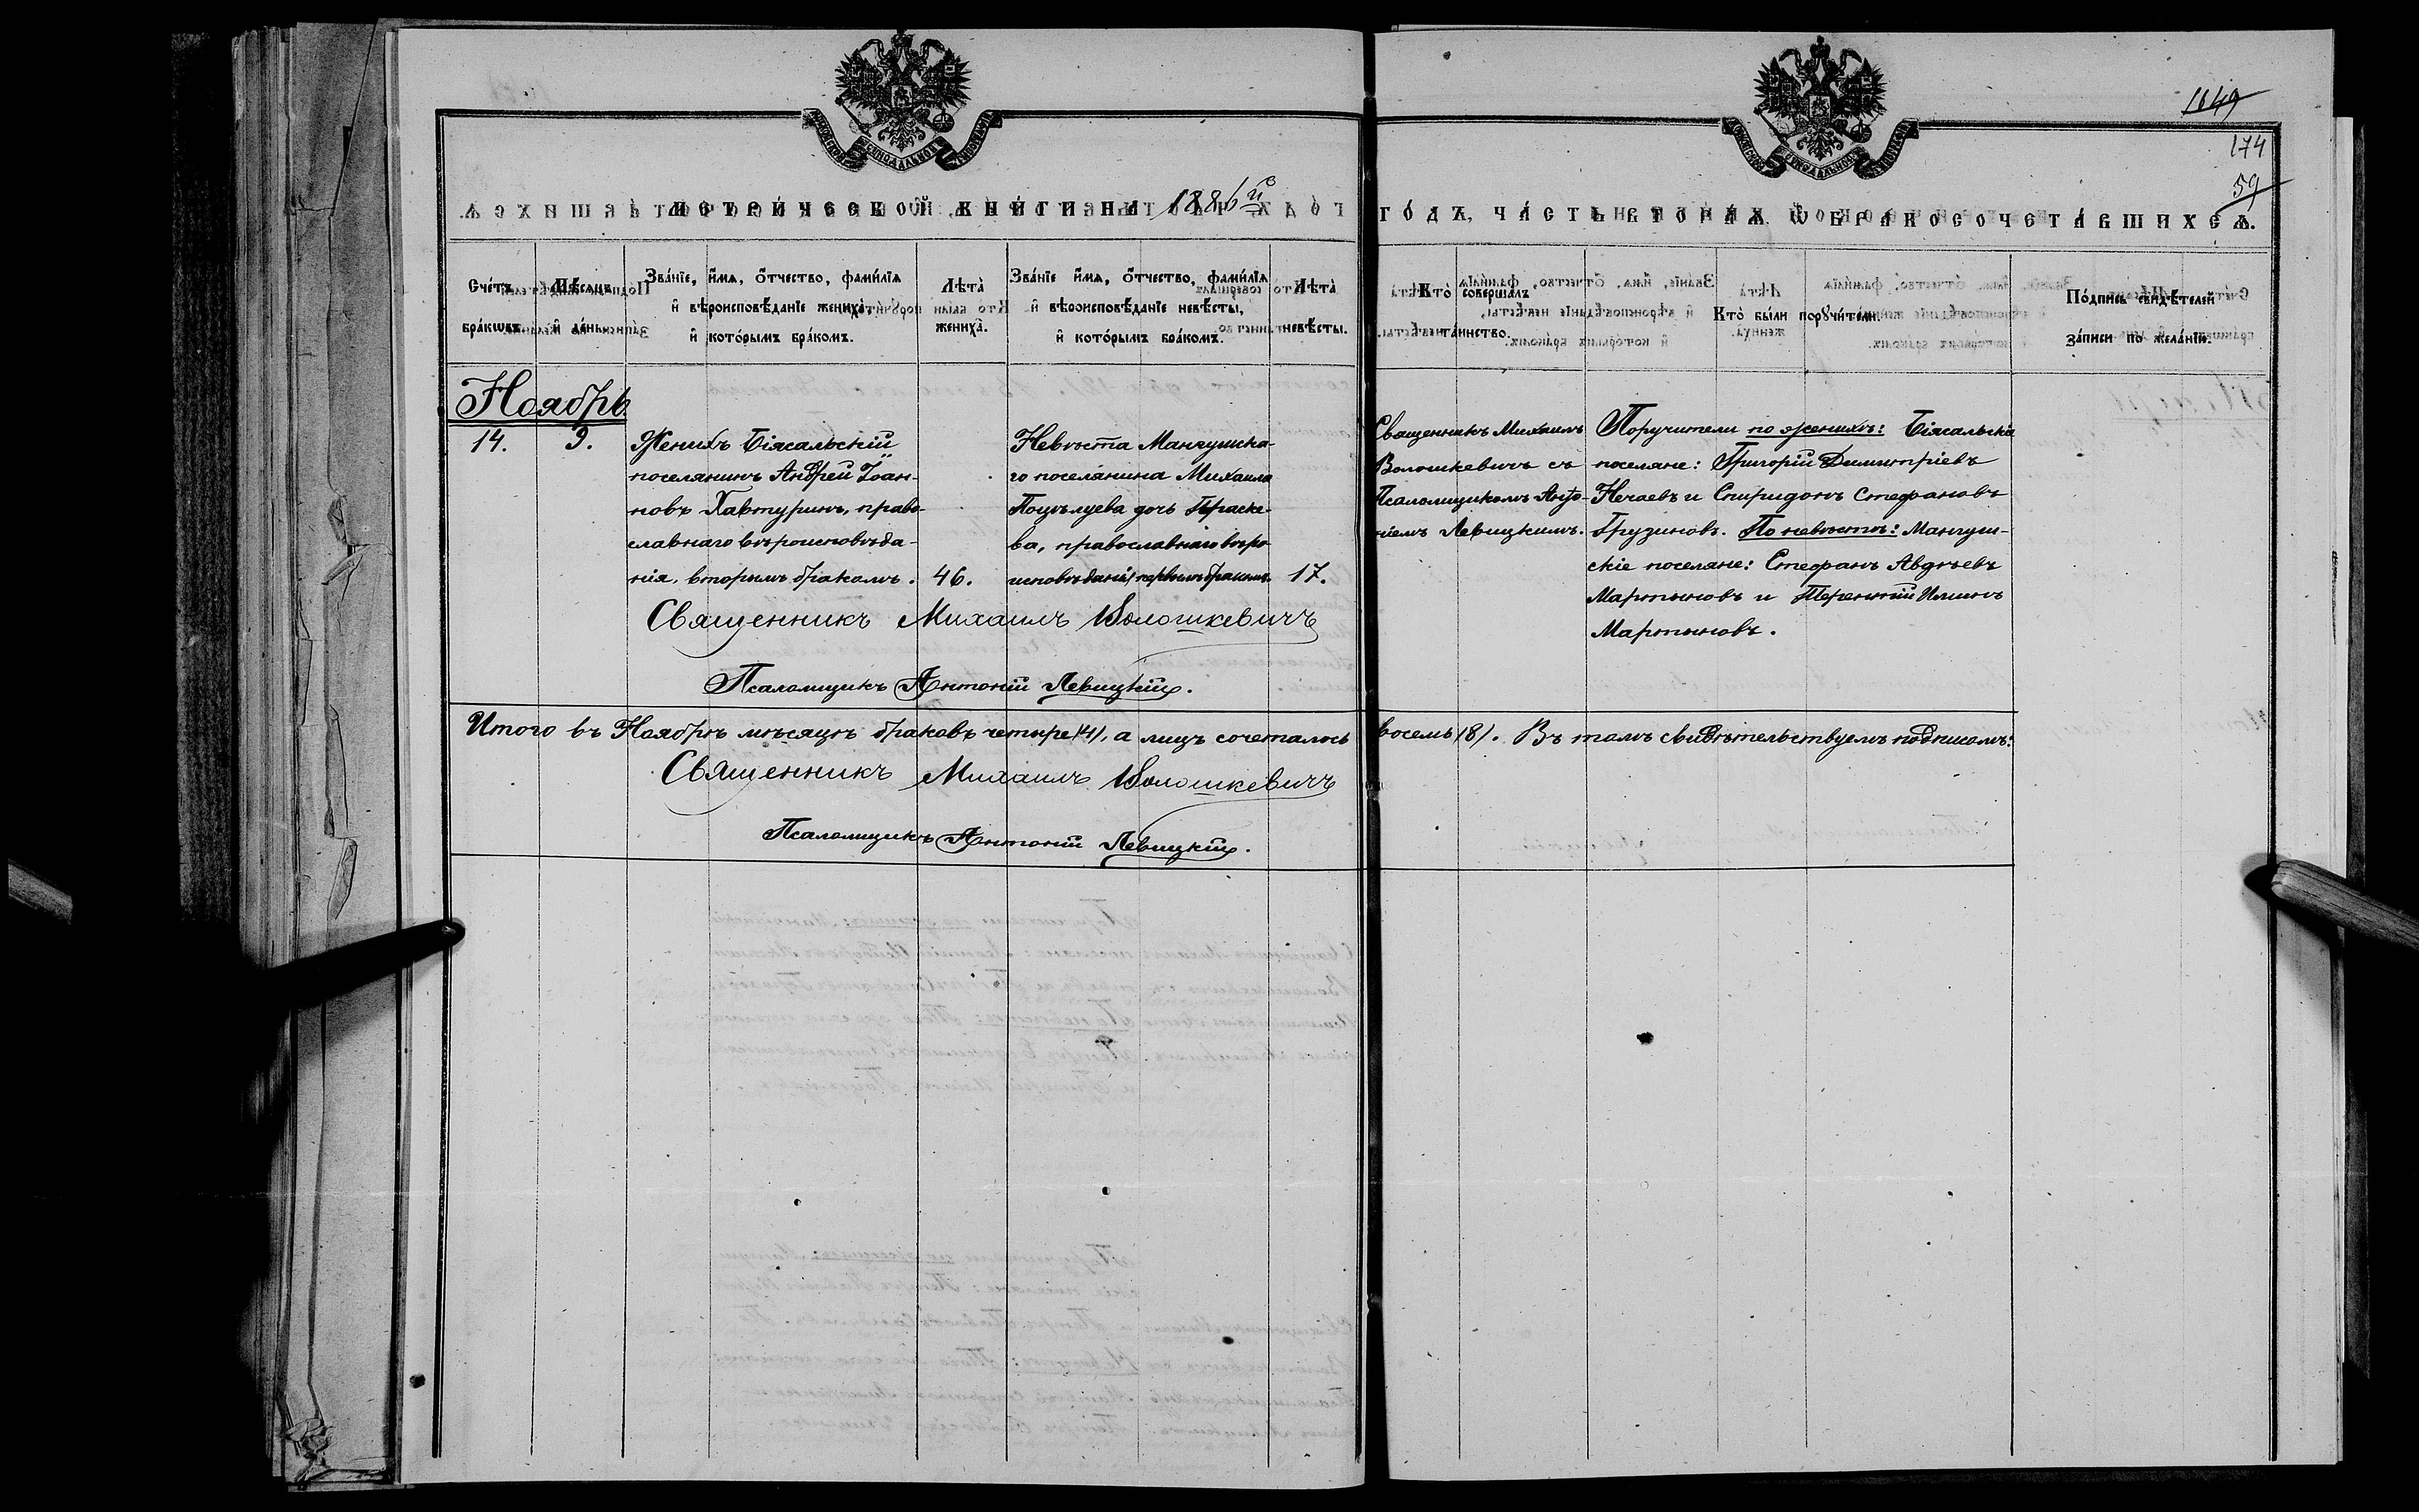 1049
174
59
МЕТРИЧЕСКОЙ КНИГИ НА 1886й
ГОДЪ, ЧАСТЬ ВТОРАЯ, Ѡ БРАКОСОЧЕТАВШИХСЯ.
Счетъ бракѡвъ.
Мѣсяцъ и день.
Званіе, имя, отчество, фамилія
и вѣроисповѣданіе жениха
и которымъ бракомъ.
Лѣта
жениха.
Званіе имя, отчество, фамилія
и вѣроисповѣданіе невѣсты,
и которымъ бракомъ.
Лѣта
невѣсты.
Кто совершалъ
таинство.
Кто были поручители.
Подпись свидѣтелей
записи по желанію.
Ноябрь
14. 9.
Женихъ Біясальскій
поселянинъ Андрей Іоан-
новъ Хавтуринъ, право-
славнаго вѣроисповѣда-
нія, вторымъ бракомъ. 46.
Невѣста Мангушска-
го поселянина Михаила
Поцѣлуева дочь Праске-
ва, православнаго вѣро-
исповѣданія, первымъ бракомъ. 17.
Священникъ Михаилъ
Волошкевичъ съ
Псаломщикомъ Анто-
ніемъ Левицкимъ.
Поручители по женихѣ: Біясальскіе
поселяне: Григорій Димитріевъ
Нечаевъ и Спиридонъ Стефановъ
Грузиновъ. По невѣстѣ: Мангуш-
скіе поселяне: Стефанъ Авдѣевъ
Мартыновъ и Терентій Илiинъ
Мартыновъ.
Священникъ Михаилъ Волошкевичъ
Псаломщикъ Антоній Левицкій.
Итого въ Ноябрѣ мѣсяцѣ браковъ четыре (4), а лицъ сочеталось восемь (8). Въ томъ свидѣтельствуемъ подписомъ:
Священникъ Михаилъ Волошкевичъ
Псаломщикъ Антоній Левицкій.